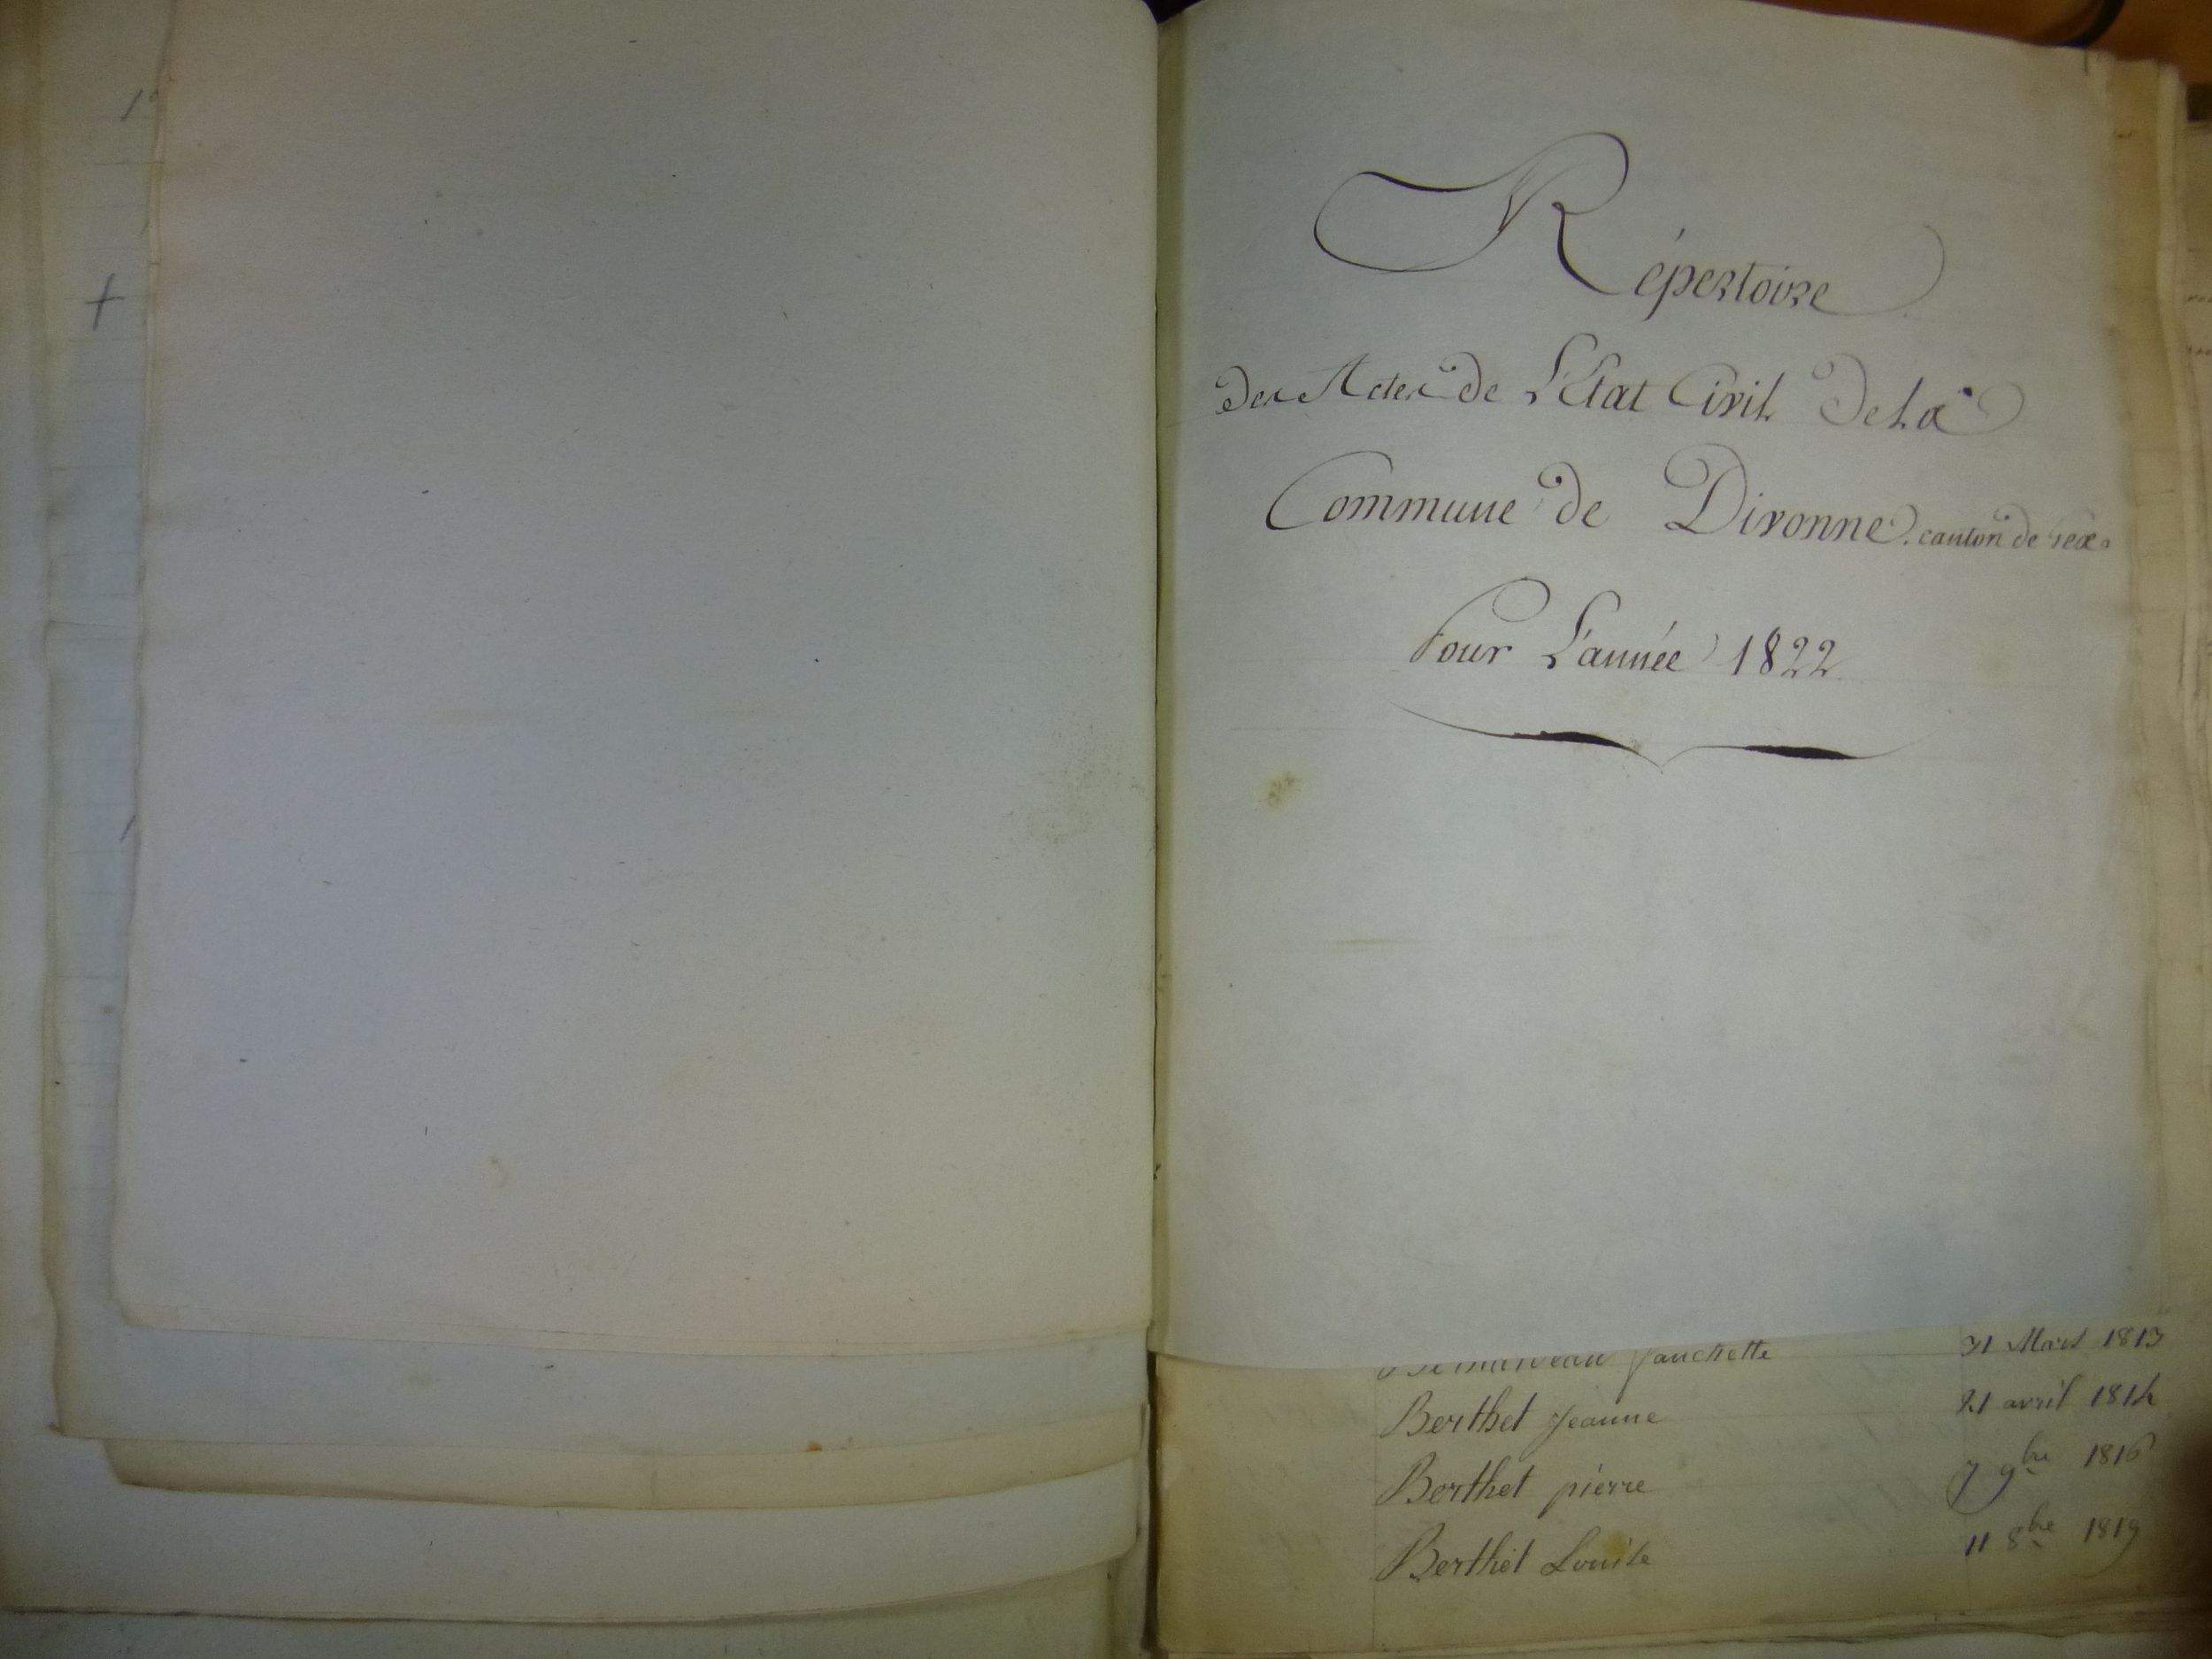 Répertoire
des Actes de L'Etat Civil de La
Commune de Divonne. canton de Gex.
Pour L'année 1822
fanchette 31 Mars 1813
Berthet Jeanne 21 avril 1814
Berthet pierre 7 9bre 1816
Berthet Louise 11 8bre 1819